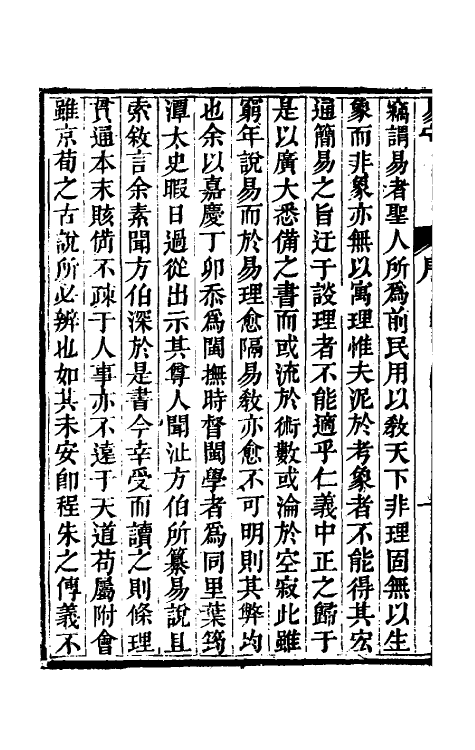 竊謂易者聖人所爲前民用以教天下非理固無以生
象而非象亦無以寓理惟夫泥於考象者不能得其宏
通簡易之旨迂于談理者不能適乎仁義中正之歸于
是以廣大悉備之書而或流於術數或淪於空寂此雖
窮年說易而於易理愈隔易敎亦愈不可明則其弊均
也余以嘉慶丁卯忝爲閩撫時督閩學者爲同里葉筠
潭太史暇日過從出示其尊人聞沚方伯所纂易說且
索敘言余素聞方伯深於是書今幸受而讀之則條理
貫通本末賅備不疎于人事亦不遠于天道苟屬附會
雖京荀之古說所必辨也如其未安卽程朱之傳義不